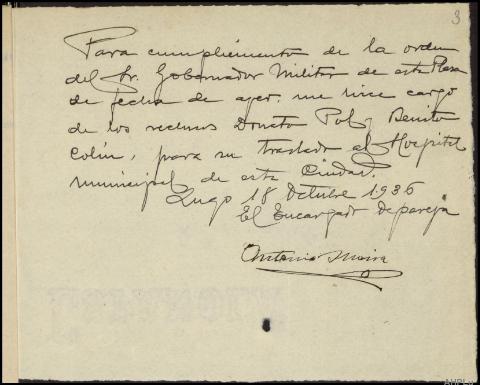 3
Para cumplimiento de la orden
del Sr. Gobernador Militar de esta Plaza
de fecha de ayer. me hice cargo
de los reclusos Donato Pol y Benito
Colín, para su traslado al Hospital
Municipal de esta Ciudad.
Lugo 18 Octubre 1936
El Encargado de pareja
Antonio